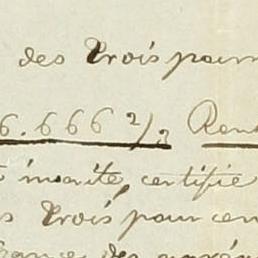 des Trois pour
6.666 2/3 Ren
inscrite, certifie
s Trois pour cen